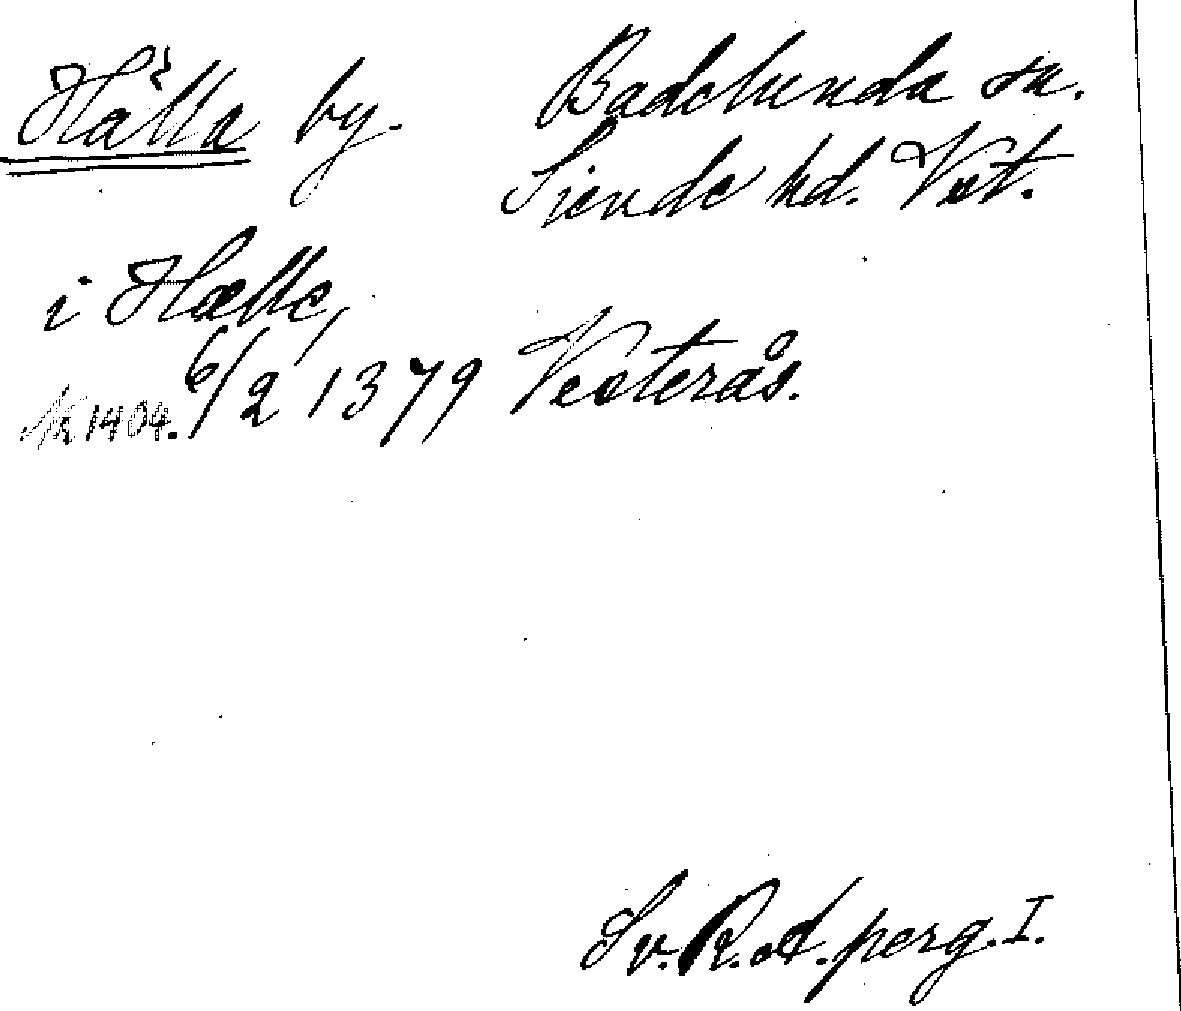 Hälla by. Badelunda sn.
Siende hd. Vst.
i Hælle,
6/2 1379 Vesterås.
Nr 1404.
Sv. R. A. perg. I.